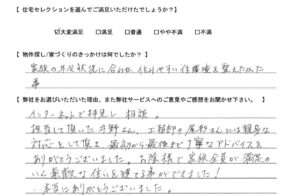 【 住宅セレクションを選んでご満足いただけたでしょうか？ 】
☑大変満足 □満足 □普通 □やや不満 □不満
【 物件探し/家づくりのきっかけは何でしたか？ 】
家族の生活状況に合わせ、住みやすい住環境を整えたかった
事
【 弊社をお選びいただいた理由、また弊社サービスへのご意見やご感想をお聞かせ下さい。 】
インターネットで拝見し 相談。
担当して頂いた井野さん、工務部の尾形さんには親身な
対応をして頂き、最初から最後まで丁寧なアドバイスを
ありがとうございました。お陰様で家族全員が満足の
いく素敵な住いを建てる事ができました！
本当にありがとうございました。